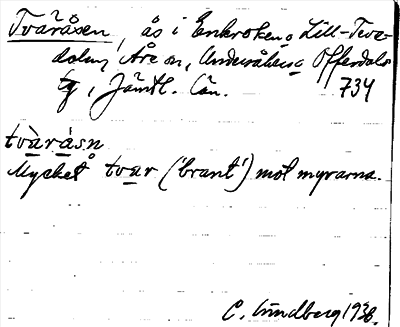 Tväråsen, ås i Enkroken o Lill-Teve-
dalen, Åre sn, Undersåkers o Offerdals
tg, Jämtl. län. 734
tvàràsn
Mycket tvär ('brant') mot myrarna.
C. Lundberg 1938.